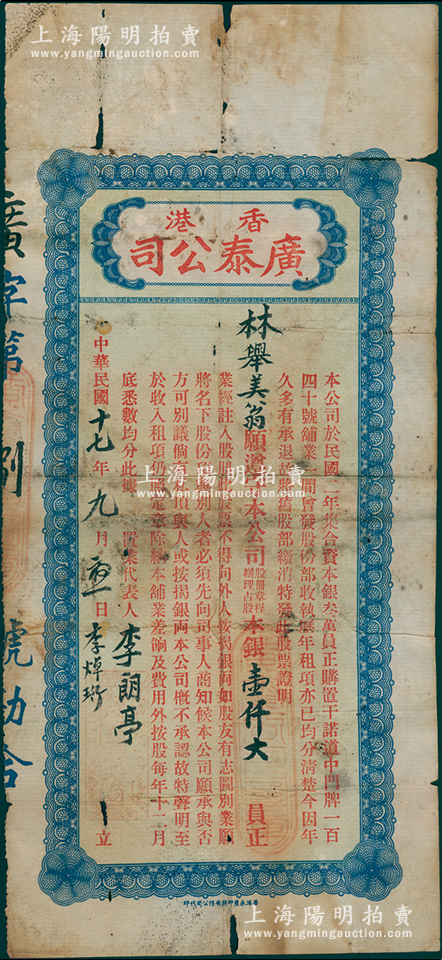 上海陽明拍賣
www.yangmingauction.com
香港
廣泰公司
本公司於民國 年集合資本銀叁萬員正購置干諾道中門牌一百
四十號舖業一間曾發股份部收執 年租項亦已均分清楚今因年
久多有承退 將舊股部繳消特發此股票證明
林舉美翁願 本公司股冊章程辦理占股本銀壹仟大員正
業經註入股 股票不得向外人按揭銀両如股友有志圖別業願
將名下股份 別人者必須先向司事人商知候本公司願承與否
方可別議倘 頂與人或按揭銀両本公司概不承認故特聲明至
於收入租項仍照定章除將本舖業差餉及費用外按股每年十二月
底悉數均分此據
置業代表人李朗亭
李焯珩
中華民國十七年九月 日
立
廣字第捌號
上海陽明拍賣
www.yangmingauction.com